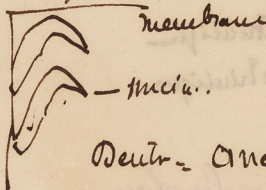 membran
— mucin..
Deutr = One